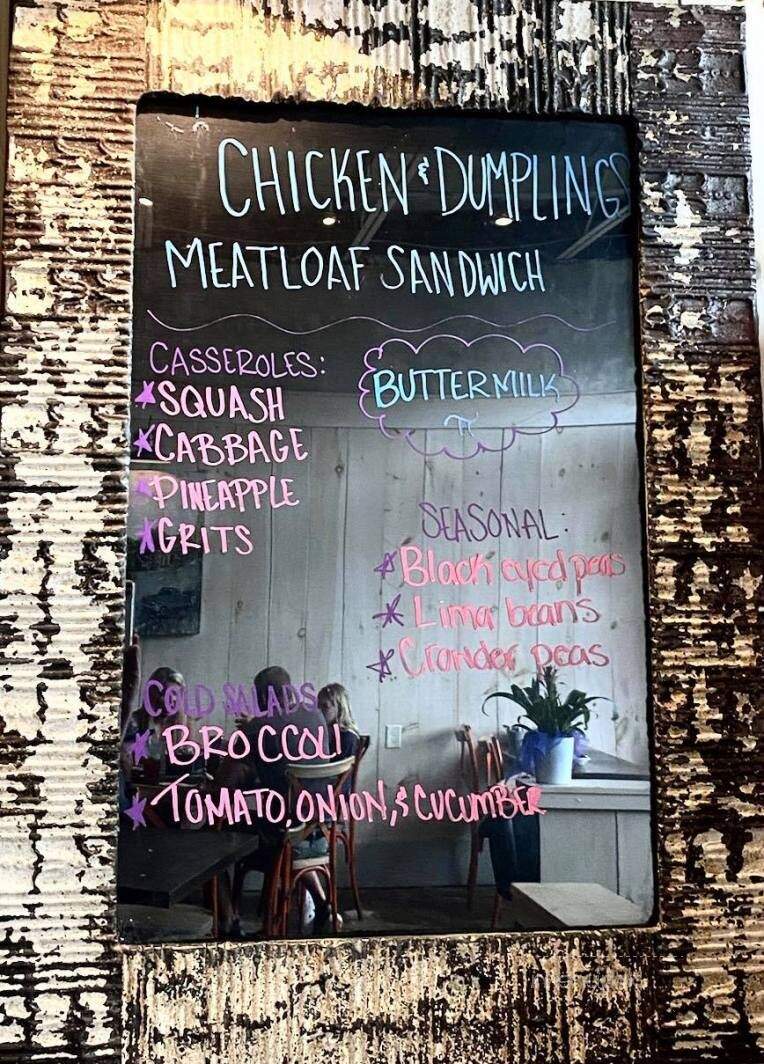 CHICKEN & DUMPLINGS
MEATLOAF SANDWICH
CASSEROLES:
*SQUASH
*CABBAGE
*PINEAPPLE
*GRITS
BUTTERMILK
π
SEASONAL:
*Black eyed peas
*Lima beans
*Crowder peas
COLD SALADS
*BROCCOLI
*TOMATO, ONION, & CUCUMBER